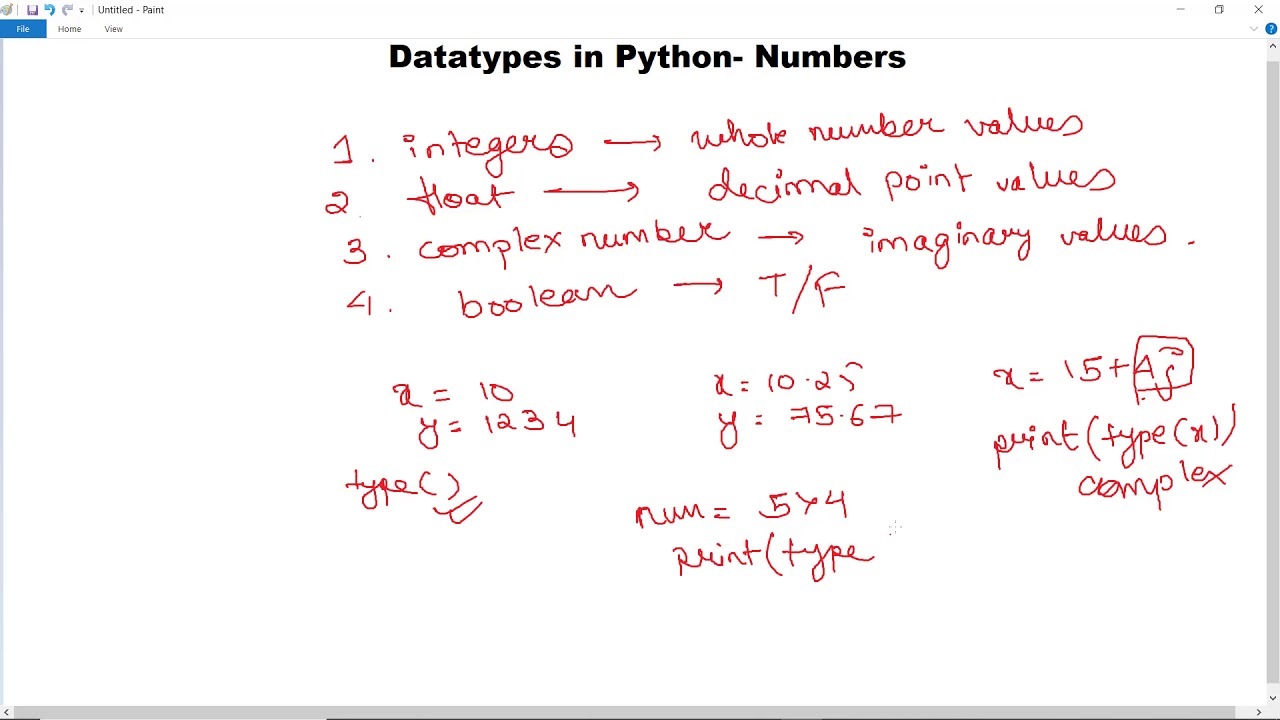 Untitled - Paint
File Home View
Datatypes in Python- Numbers
1. integers → whole number values
2. float → decimal point values
3. complex number → imaginary values.
4. boolean → T/F
x = 10
y = 1234
type()
x = 10.25
y = 75.67
num = 5>4
print(type
x = 15+4j
print(type(x))
complex